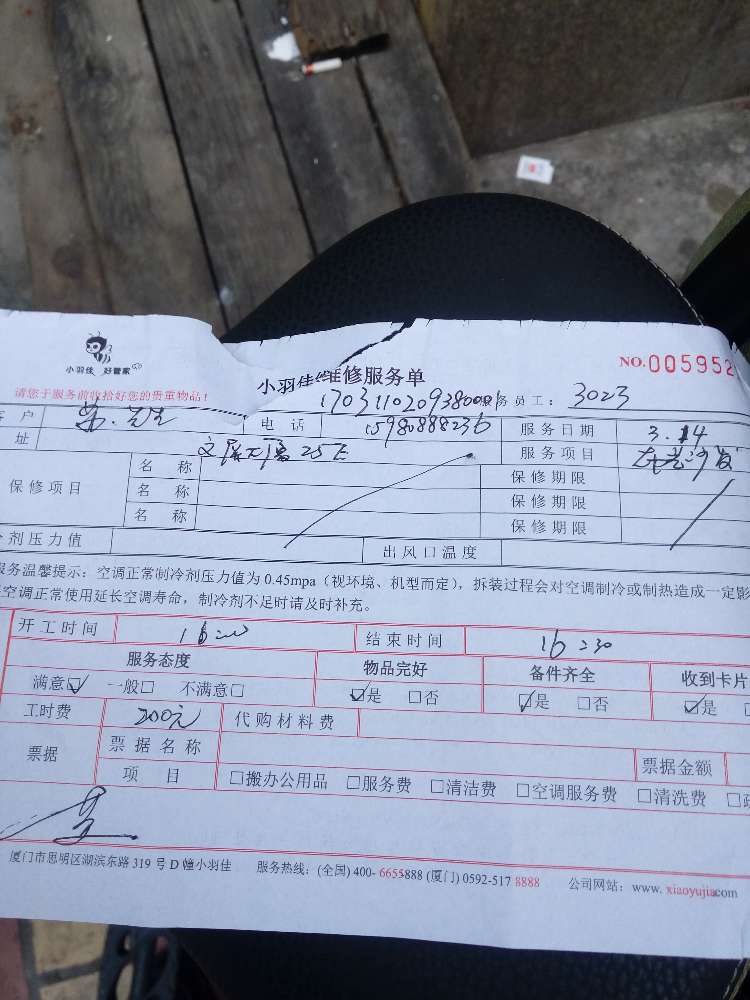 小羽佳 好管家
小羽佳维修服务单
NO.005952
请您于服务前收拾好您的贵重物品!
务员工: 3023
户
电话 15980888236
服务日期 3.14
址
服务项目
保修项目 名称 保修期限
名称 保修期限
名称 保修期限
剂压力值 出风口温度
服务温馨提示:空调正常制冷剂压力值为0.45mpa(视环境、机型而定),拆装过程会对空调制冷或制热造成一定影
空调正常使用延长空调寿命,制冷剂不足时请及时补充。
开工时间 结束时间 16:30
服务态度 物品完好 备件齐全 收到卡片
满意☑ 一般□ 不满意□ ☑是 □否 ☑是 □否 ☑是
工时费 200元 代购材料费
票据 票据名称 票据金额
项目 □搬办公用品 □服务费 □清洁费 □空调服务费 □清洗费
厦门市思明区湖滨东路319号D幢小羽佳 服务热线:(全国)400-6655888(厦门)0592-5178888 公司网站:www.xiaoyujia.com